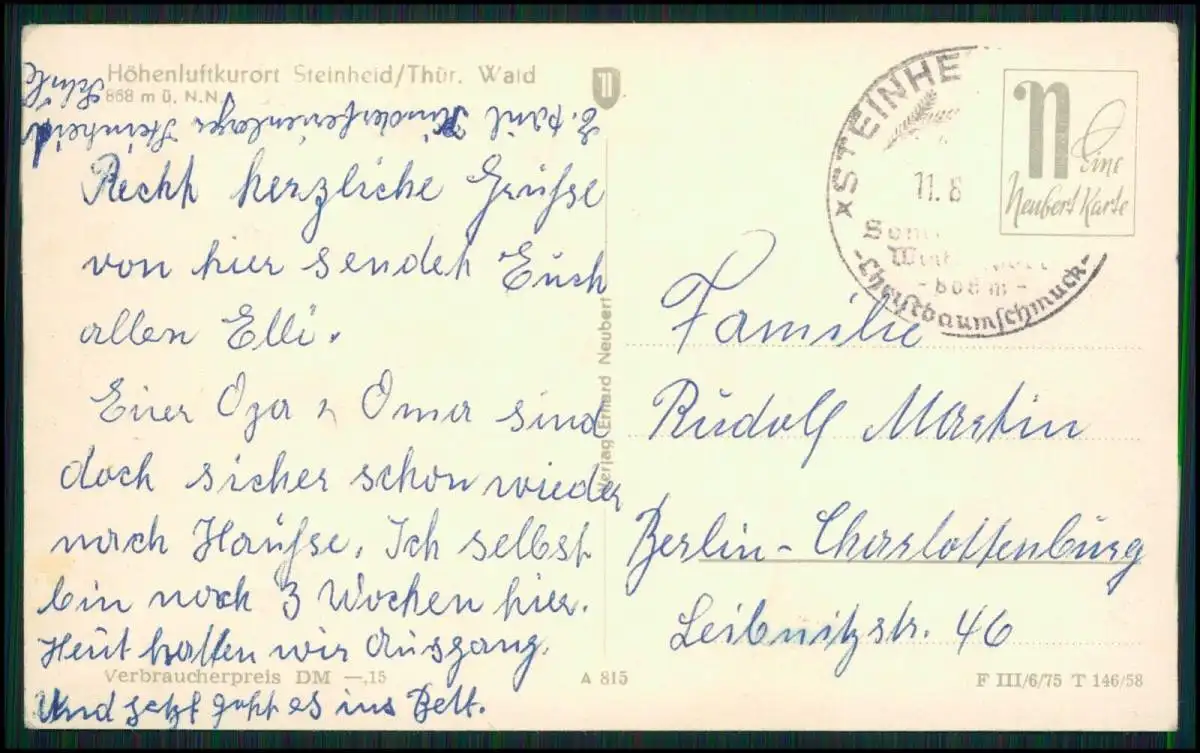 Höhenluftkurort Steinheid/Thür. Wald
868 m ü. N.N.
Z. Zeit Kinderferienlager Steinheid
Schule
Recht herzliche Grüße
von hier sendet Euch
allen Elli.
Eurer Opa u Oma sind
doch sicher schon wieder
nach Hauſse. Ich selbst
bin noch 3 Wochen hier.
Heut hatten wir Ausgang.
Und jetzt geht es ins Bett.
Verbraucherpreis DM —,15
A 815
Verlag Erhard Neubert
STEINHE
11. 8
Som
Win
- 868 m -
-Christbaumschmuck-
N
Eine
Neubert Karte
Familie
Rudolf Martin
Berlin-Charlottenburg
Leibnitzstr. 46
F III/6/75 T 146/58